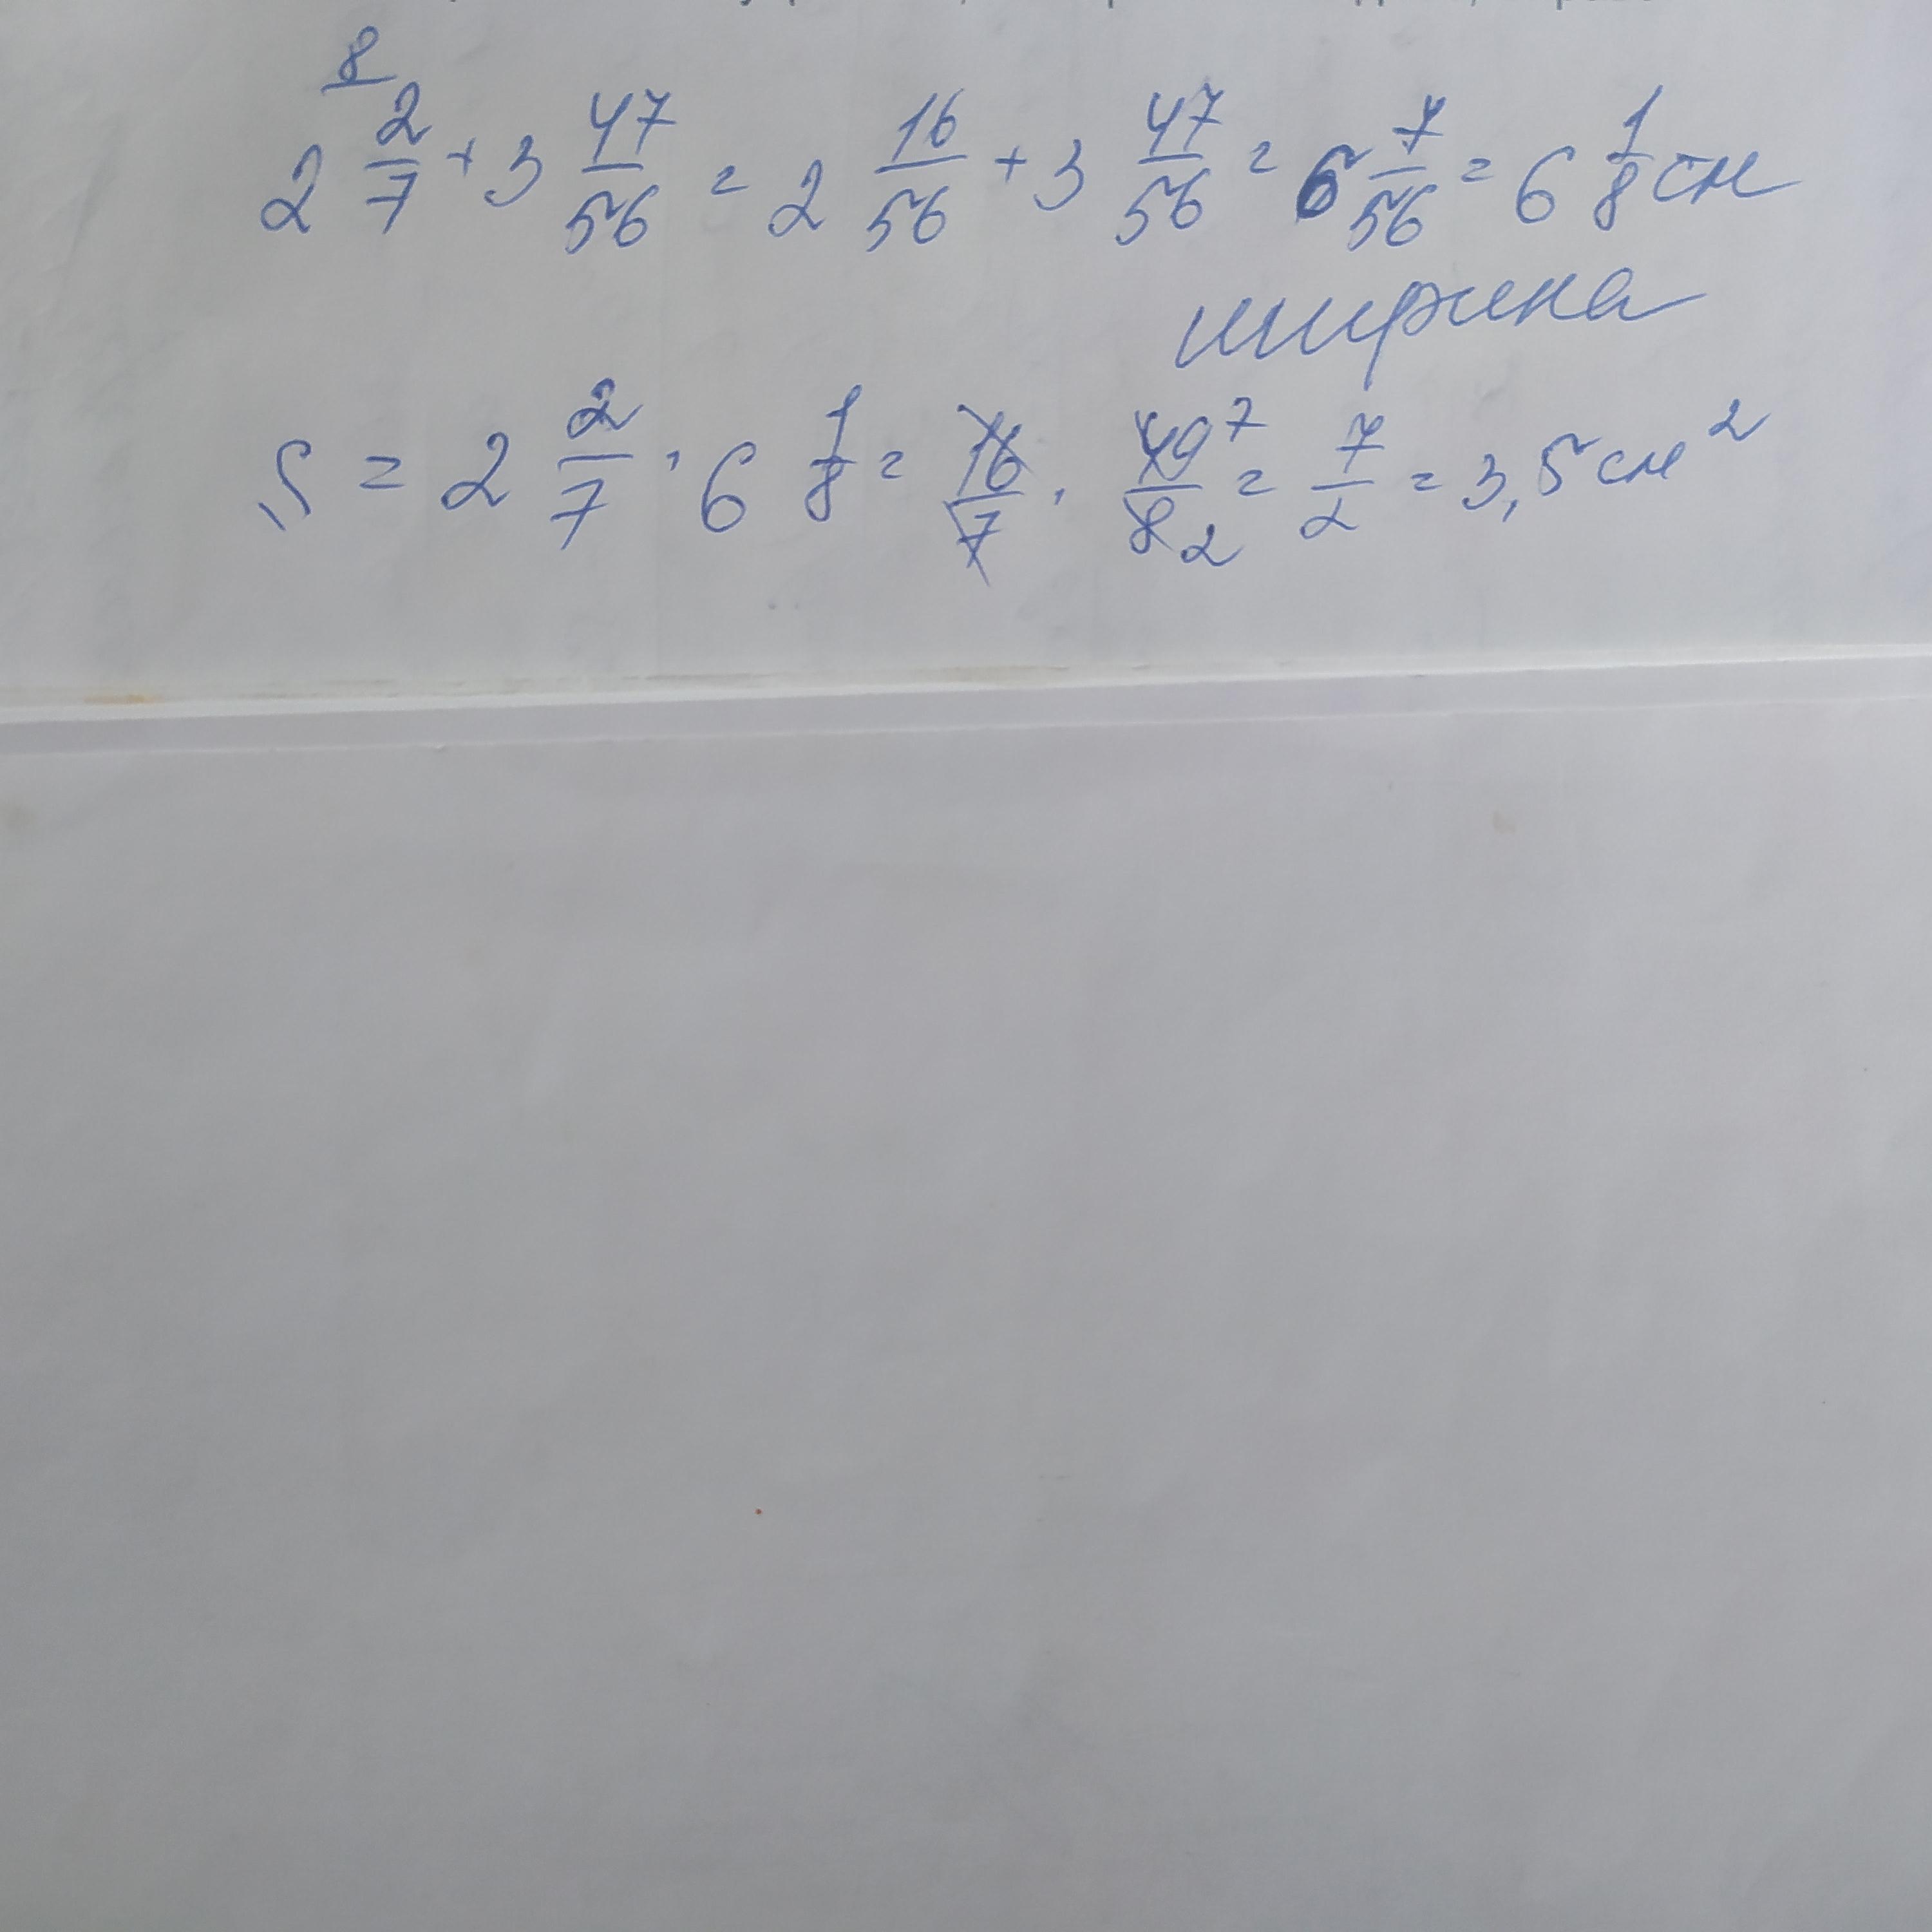 8
2 2/7 + 3 47/56 = 2 16/56 + 3 47/56 = 6 7/56 = 6 1/8 см
ширина
S = 2 2/7 · 6 1/8 = 16/7 · 49 7/8 2 = 7/2 = 3,5 см²